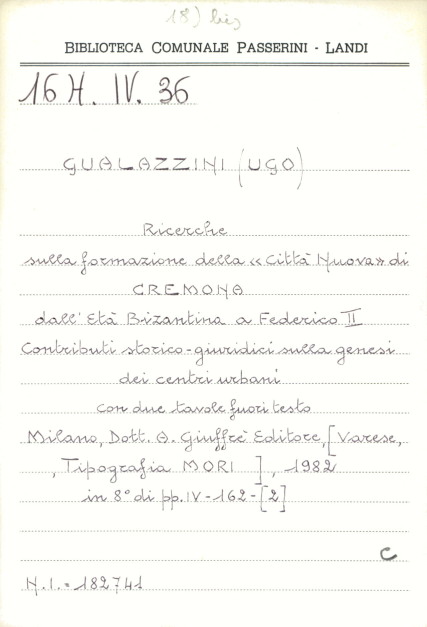 18) bis
BIBLIOTECA COMUNALE PASSERINI - LANDI
16 H. IV. 36
GUALAZZINI (UGO)
Ricerche
sulla formazione della «Città Nuova» di
CREMONA
dall'Età Bizantina a Federico II
Contributi storico-giuridici sulla genesi
dei centri urbani
con due tavole fuori testo
Milano, Dott. A. Giuffrè Editore, [Varese,
, Tipografia MORI ], 1982
in 8° di pp. IV-162-[2]
C
N.I.=182741